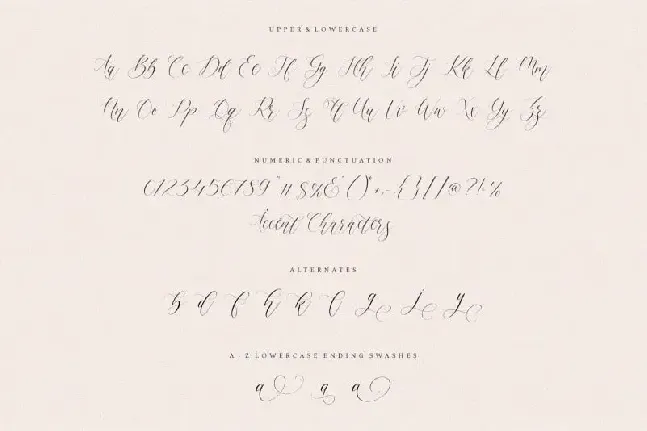 UPPER & LOWERCASE
Aa Bb Cc Dd Ee Ff Gg Hh Ii Jj Kk Ll Mm
Nn Oo Pp Qq Rr Ss Tt Uu Vv Ww Xx Yy Zz
NUMERIC & PUNCTUATION
0123456789 " # $ % & ' ( ) * + , - { } [ ] @ ? ! : %
Accent Characters
ALTERNATES
b d f h k l g j y
A - Z LOWERCASE ENDING SWASHES
a a a